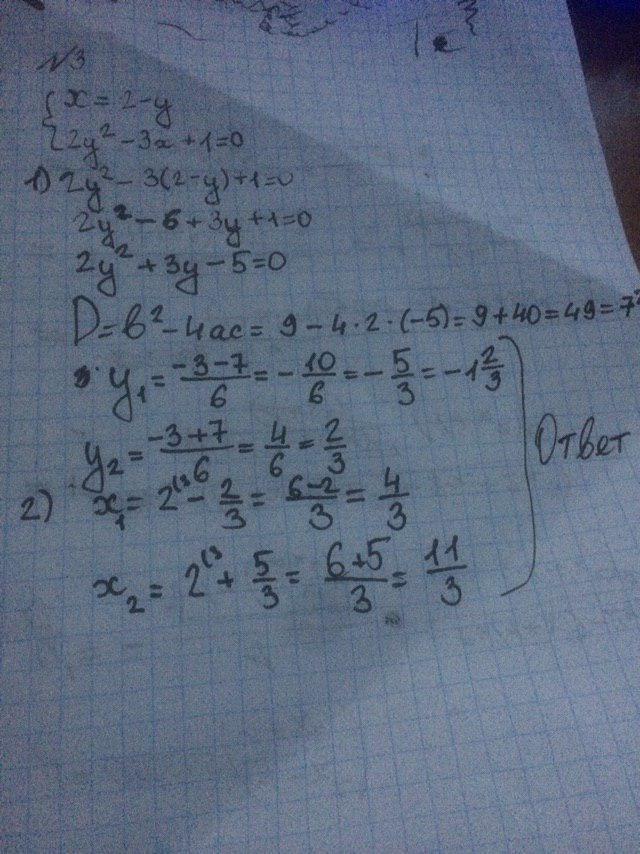 №3
{ x = 2-y
{ 2y² - 3x + 1 = 0
1) 2y² - 3(2-y) + 1 = 0
2y² - 6 + 3y + 1 = 0
2y² + 3y - 5 = 0
D = b² - 4ac = 9 - 4·2·(-5) = 9 + 40 = 49 = 7²
y₁ = (-3-7)/6 = -10/6 = -5/3 = -1 2/3
y₂ = (-3+7)/6 = 4/6 = 2/3
Ответ
2) x₁ = 2⁽³ - 2/3 = (6-2)/3 = 4/3
x₂ = 2⁽³ + 5/3 = (6+5)/3 = 11/3